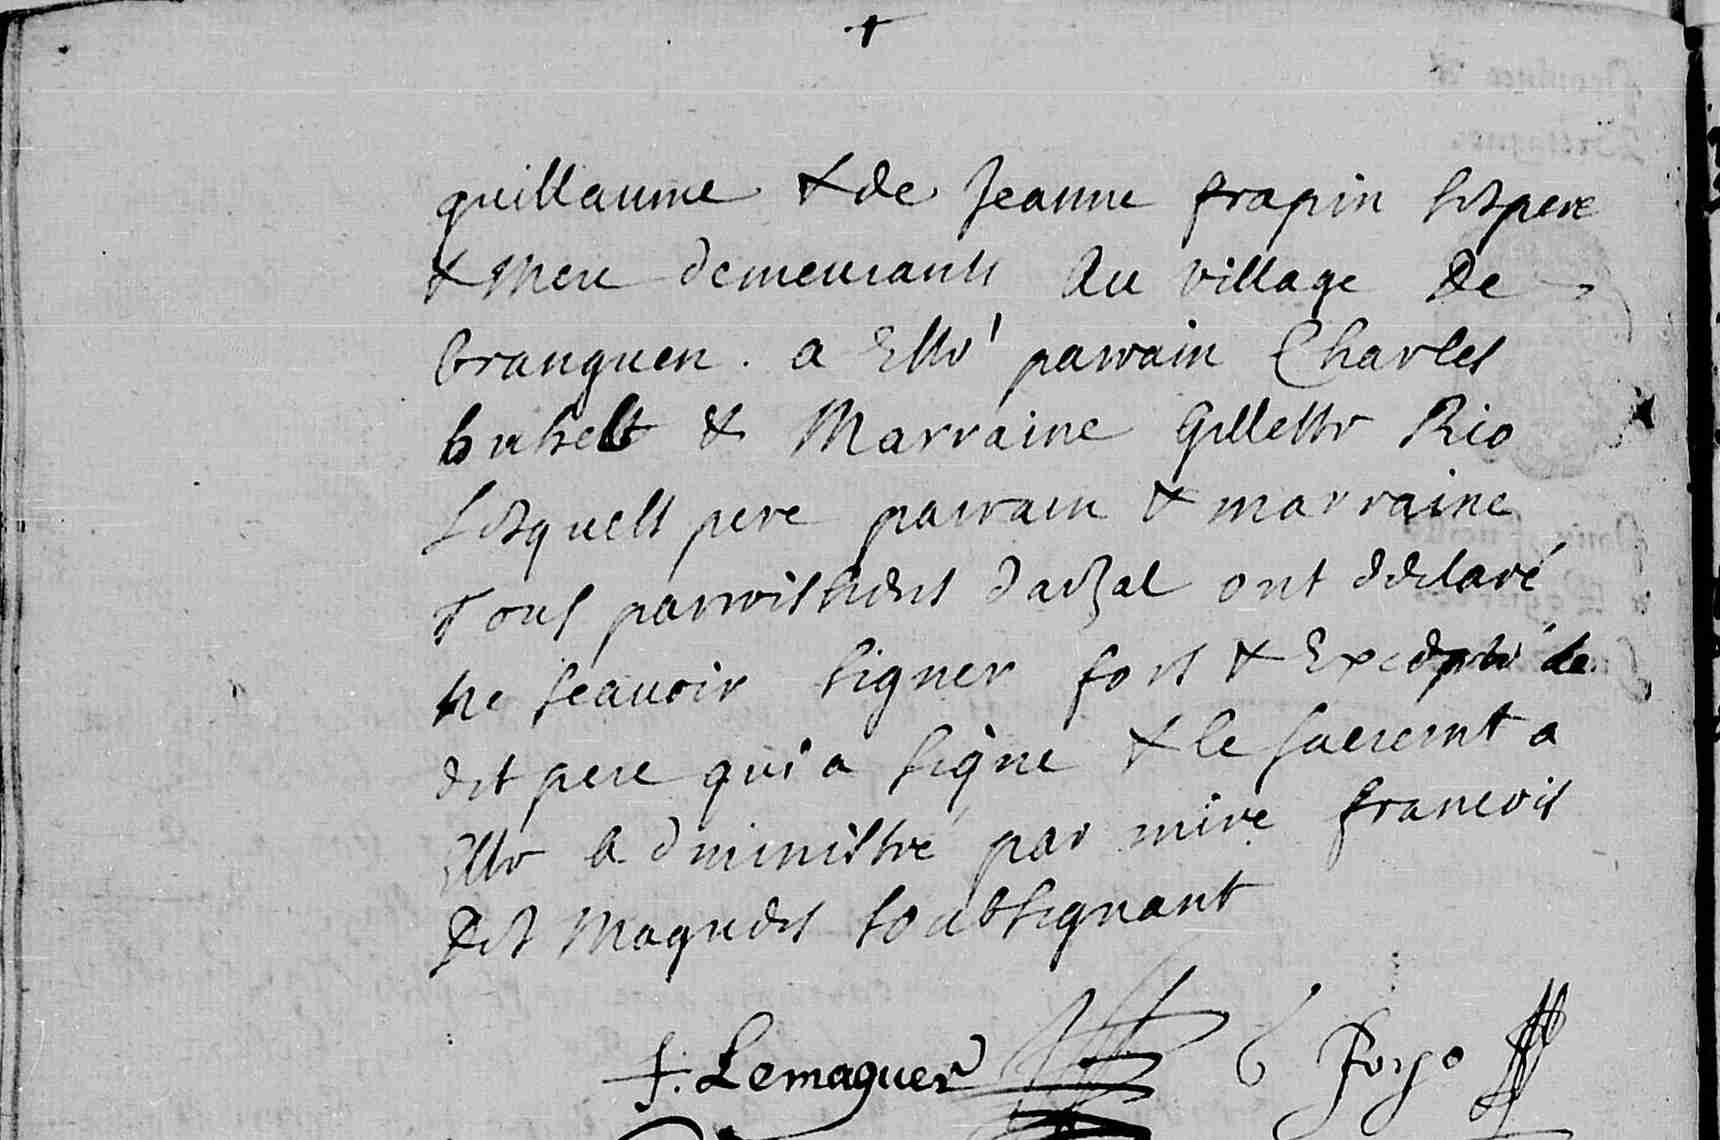 guillaume & de Jeanne frapin ses pere
& mere demeurants au village de
branguen . a este parrain Charles
& Marraine Gillette Rio
lesquels pere parrain & marraine
tous parroissiens darzal ont declaré
ne scauoir signer fors & Excepté le
dit pere qui a signe & le sacremt a
este administré par mire francois
Le Maguer soubsignant
f. Lemaguer